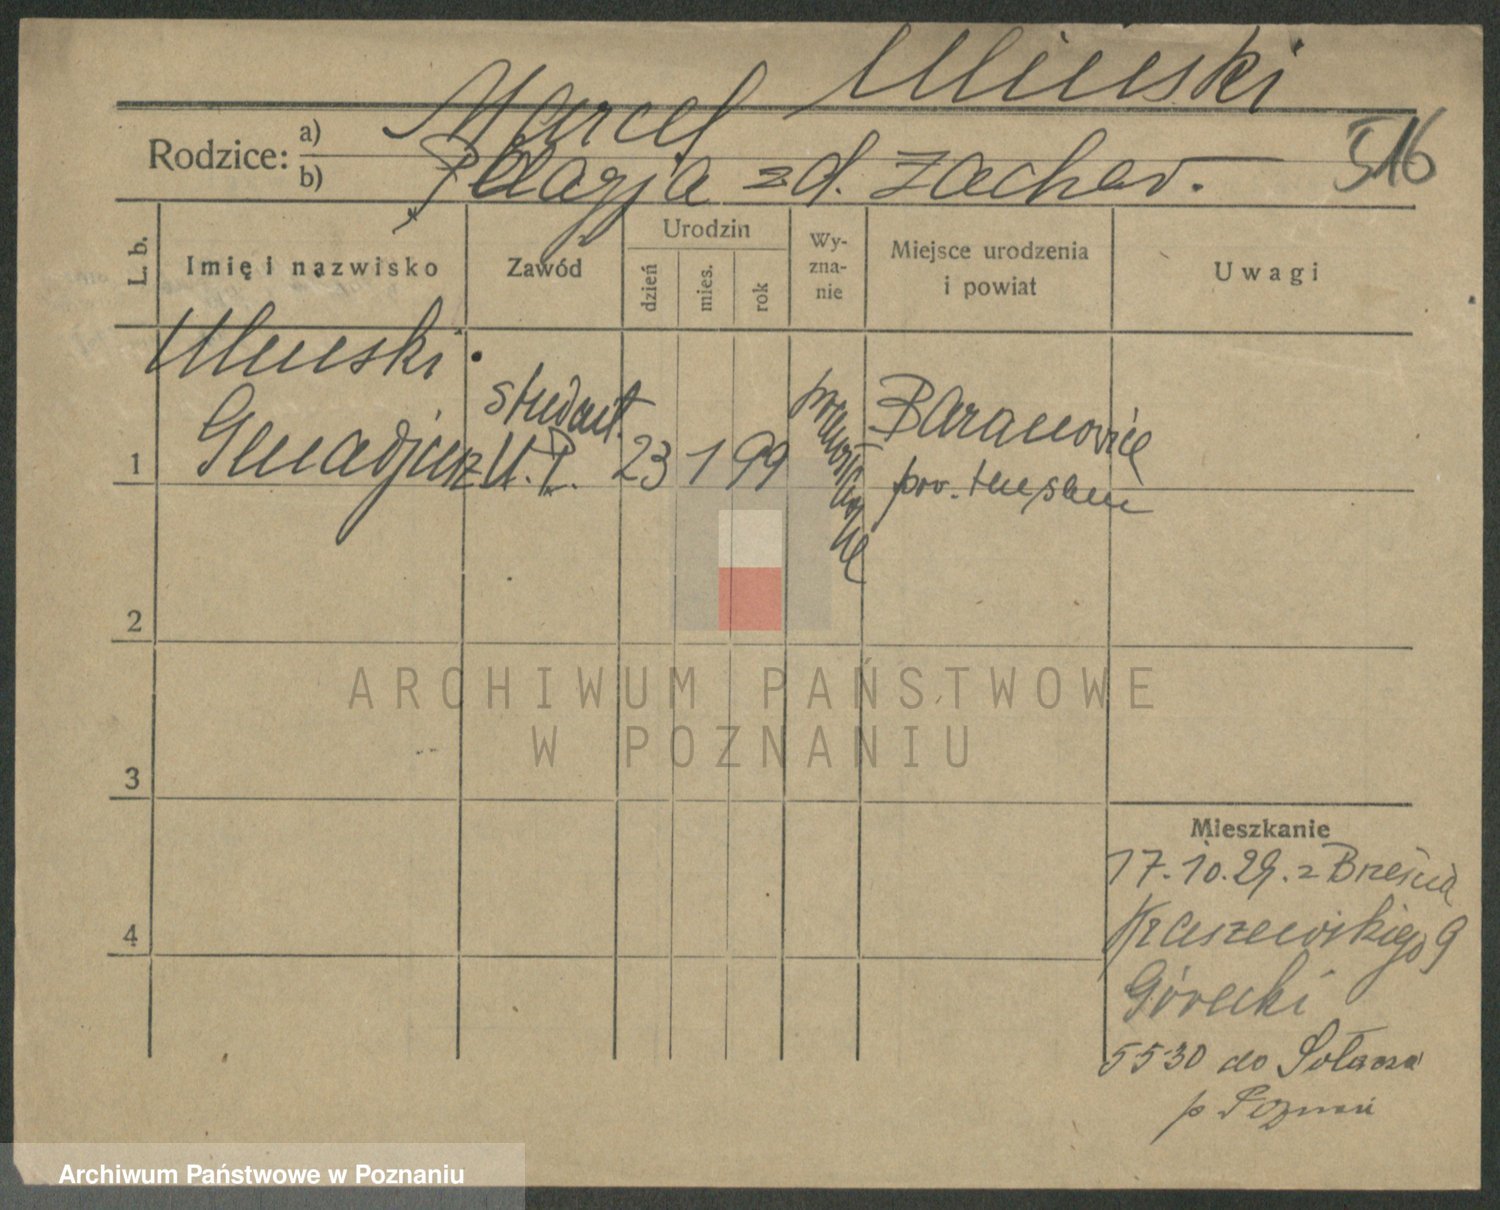 Uliński
Rodzice: a) Marcel
b) Pelagja zd. Zachar.
516
L. b.
Imię i nazwisko
Zawód
Urodzin
dzień
mies.
rok
Wy-
zna-
nie
Miejsce urodzenia
i powiat
Uwagi
1
Uliński
student.
U. P.
23
1
99
prawosławne
Baranowice
pow.
2
3
4
Mieszkanie
17.10.29. z Brześcia
Kraszewskiego 9
Górecki
5530 do Sołacza
p Poznań
ARCHIWUM PAŃSTWOWE
W POZNANIU
Archiwum Państwowe w Poznaniu